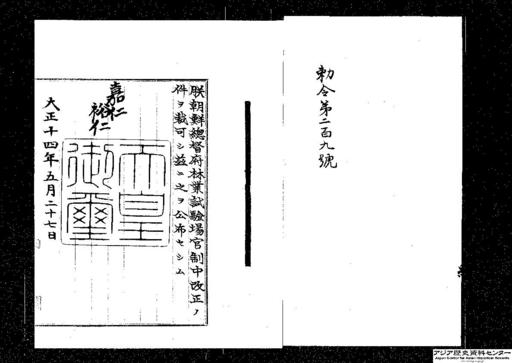 勅令第二百九號
朕朝鮮總督府林業試驗場官制中改正ノ
件ヲ裁可シ茲ニ之ヲ公布セシム
嘉仁
裕仁
天皇
御璽
大正十四年五月二十七日
アジア歴史資料センター
Japan Center for Asian Historical Records